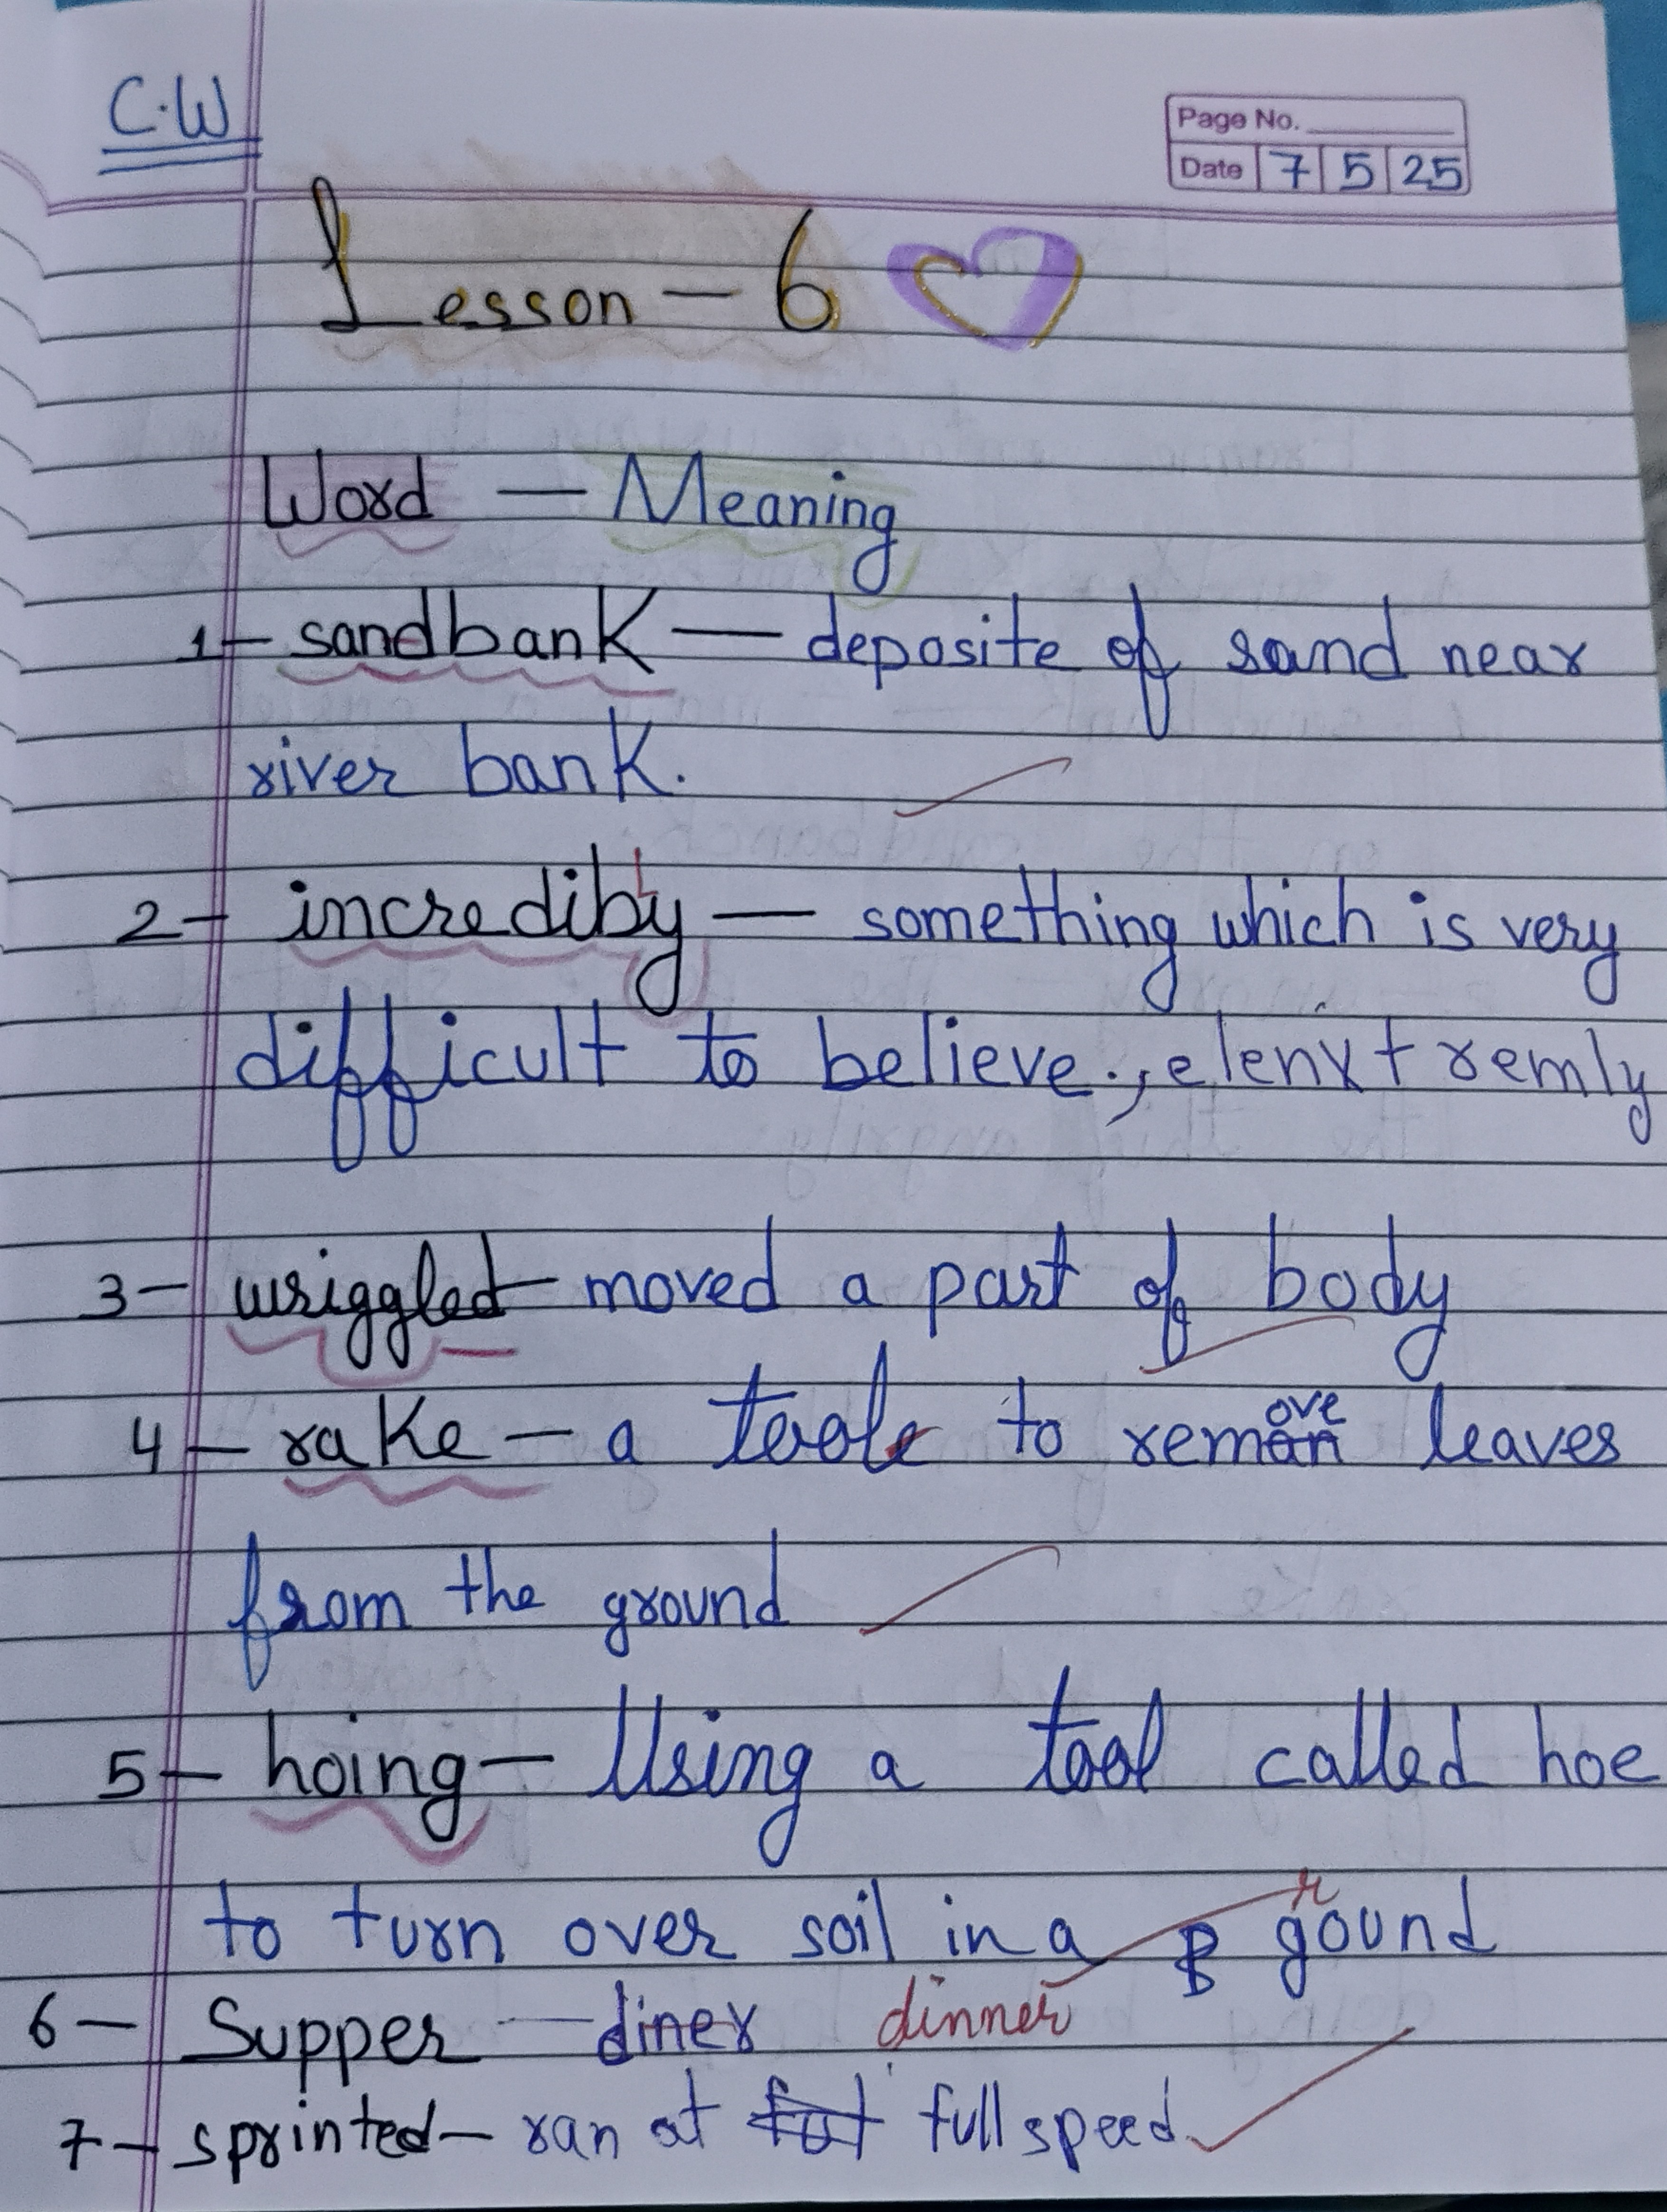 C.W
Page No.
Date 7 5 25
Lesson - 6
Word — Meaning
1- sandbank — deposite of sand near
river bank.
2- incredibly — something which is very
difficult to believe., elenxtremly
3- wriggled - moved a part of body
4 - rake - a tool to remove leaves
from the ground
5- hoing - Using a tool called hoe
to turn over soil in a ground
6 - Supper - diner dinner
7- sprinted - ran at full speed.